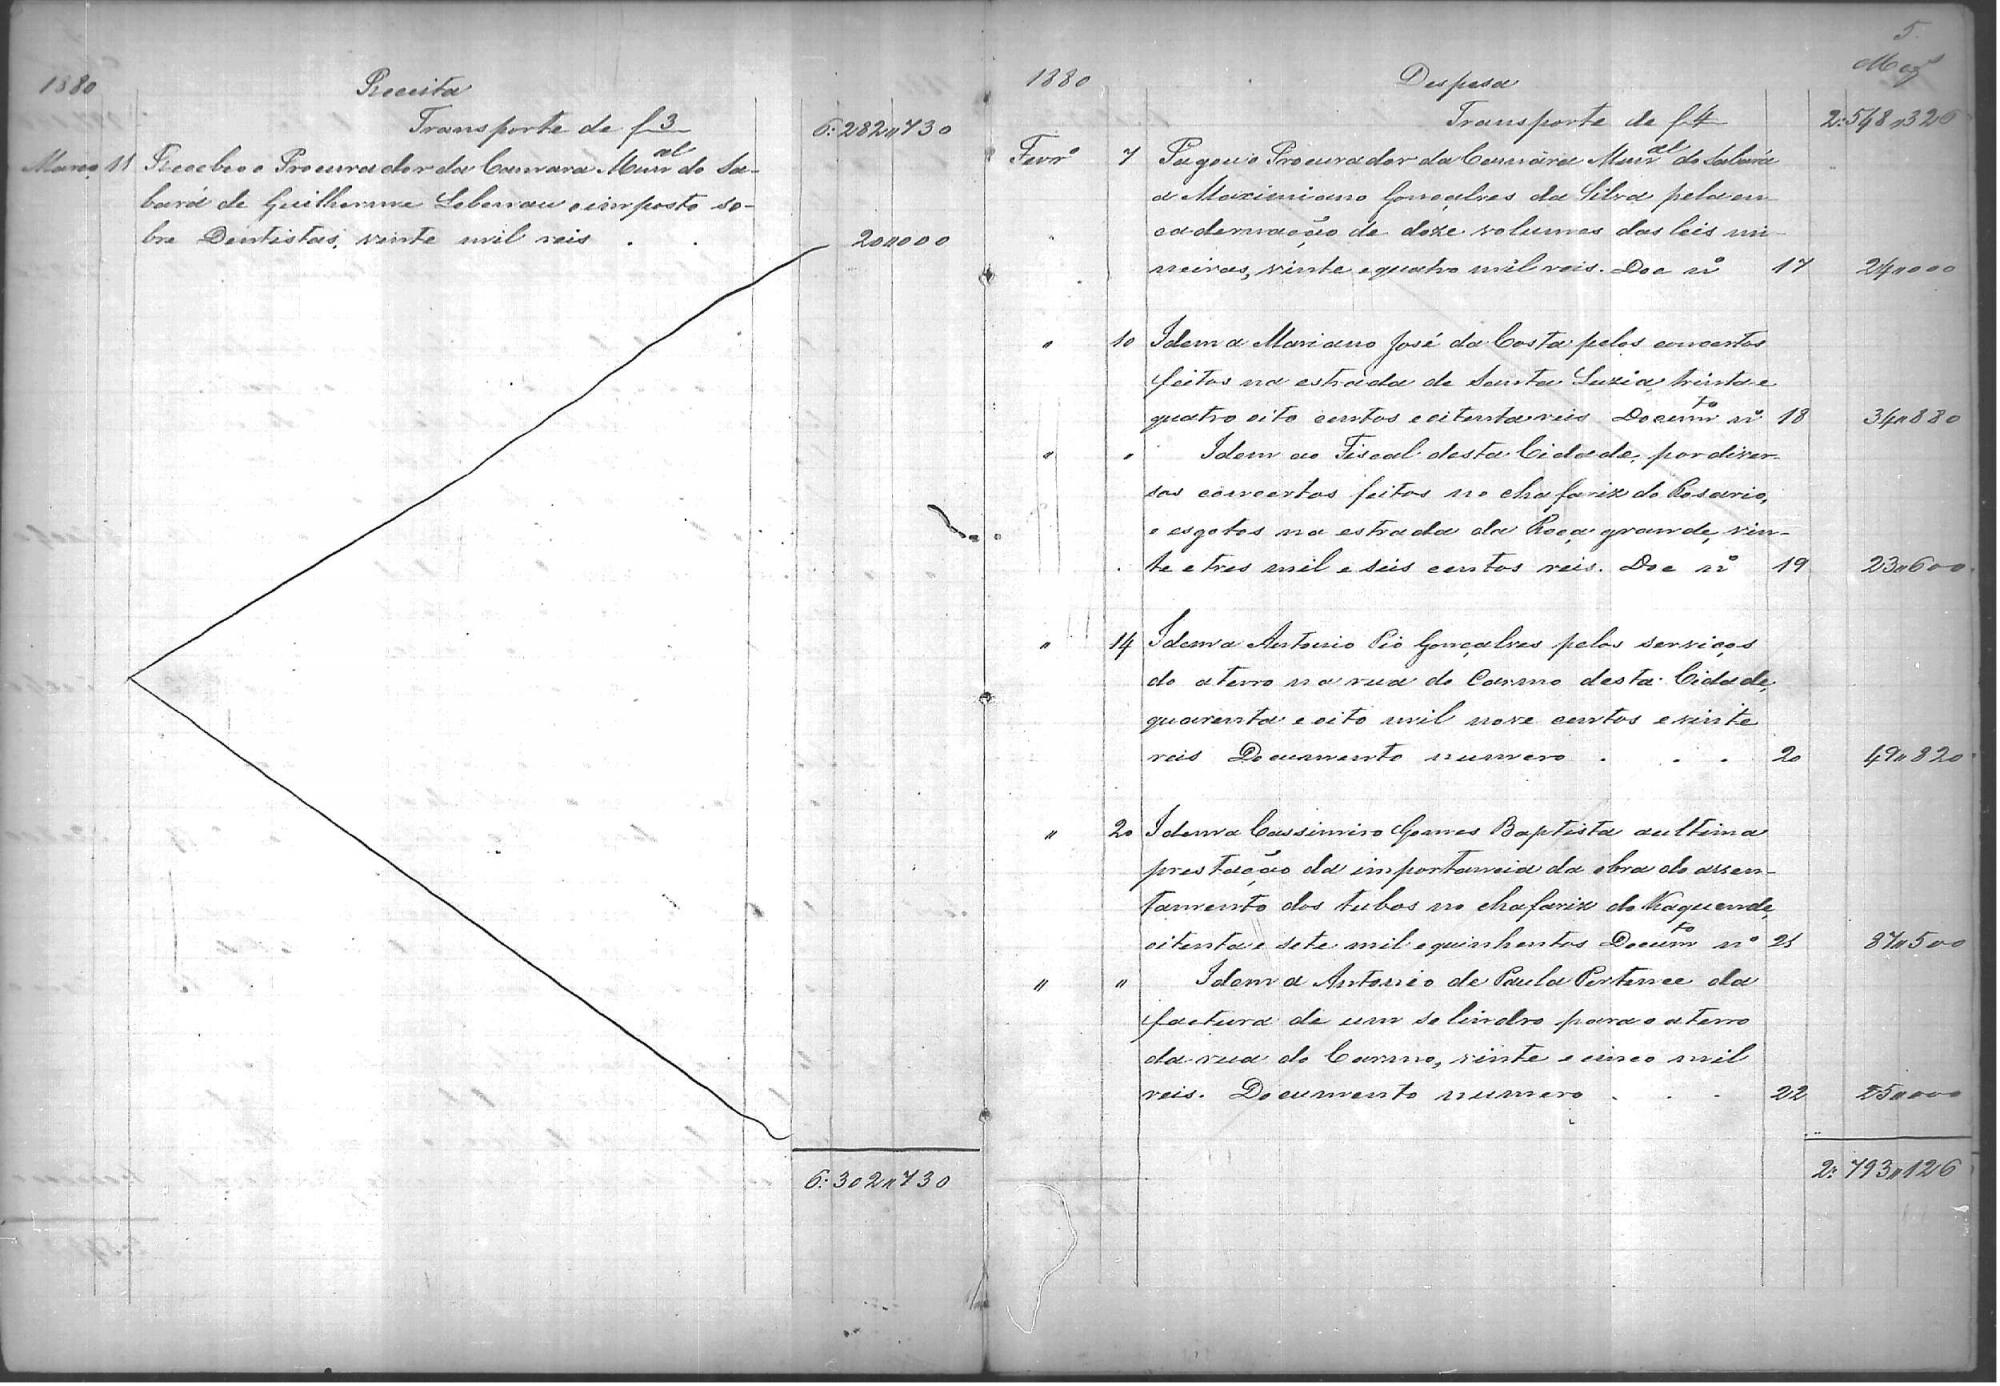 1880
Receita
Transporte de f 3 6:282"730
Março 11 Recebeo o Procurador da Camara Munal do Sa-
bará de Guilherme o imposto so-
bre Dentistas, vinte mil reis . . 20"000
6:302"730
5
1880
Despesa
Transporte de f 4 2:548"326
Fevro 7 Pagou o Procurador da Camâra Munal do Sabará
a Maximiano Gonçalves da Silva pela en-
cadernação de doze volumes das leis mi-
neiras, vinte e quatro mil reis. Doc nº 17 24"000
" 10 Idem a Mariano José da Costa pelos concertos
feitos na estrada de Santa Luzia, trinta e
quatro oito centos e oitenta reis Documto nº 18 34"880
" " Idem ao Fiscal desta Cidade, por diver-
sos concertos feitos no chafariz do Rosario,
e esgotos na estrada da Roça grande, vin-
te e tres mil e seis centos reis. Doc nº 19 23"600
" 14 Idem a Antonio Pio Gonçalves pelos serviços
do aterro na rua do Carmo desta Cidade,
quarenta e oito mil nove centos e vinte
reis Documento numero . . . 20 49"820
" 20 Idem a Cassimiro Gomes Baptista a ultima
prestação da importancia da obra do assen-
tamento dos tubos no chafariz do Kaquende,
oitenta e sete mil e quinhentos Documto nº 21 87"500
" " Idem a Antonio de Paula Pertence da
factura de um selindro para o aterro
da rua do Carmo, vinte e cinco mil
reis. Documento numero . . . 22 25"000
2:793"126